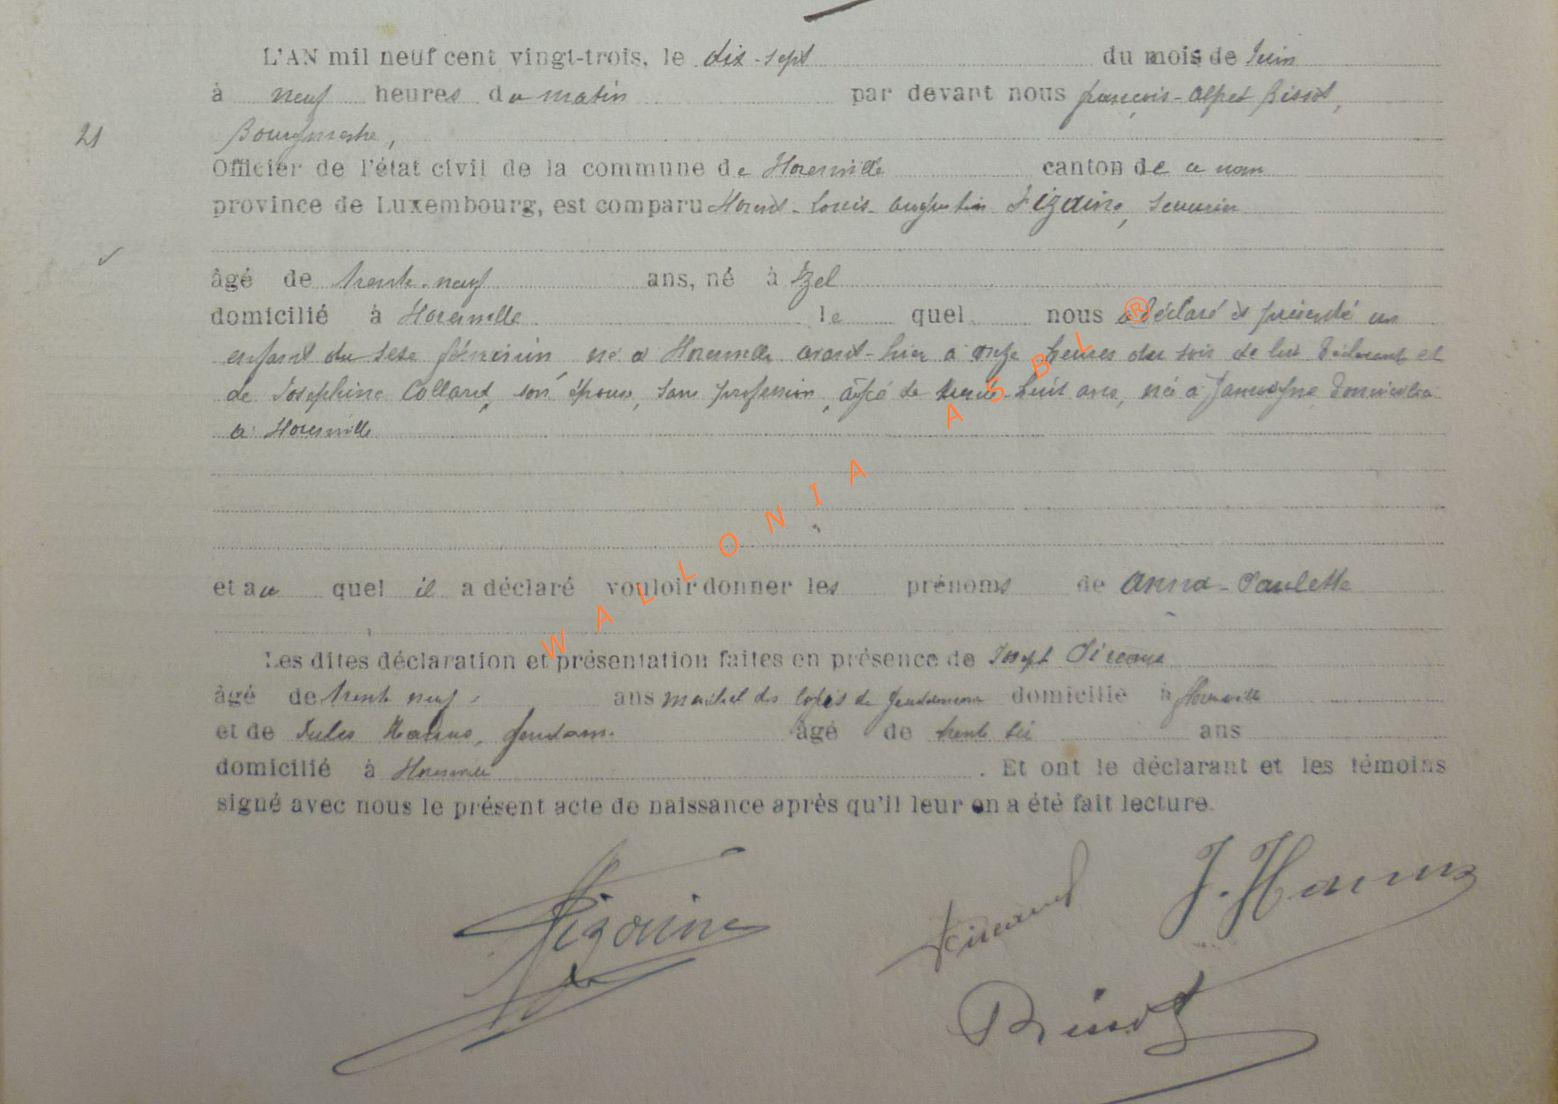 L'AN mil neuf cent vingt-trois, le dix-sept du mois de Juin
à neuf heures du matin par devant nous françois-Alfred Bissot,
21 Bourgmestre,
Officier de l'état civil de la commune de canton de
province de Luxembourg, est comparu Louis-Augustin Fizaine,
âgé de trente-neuf ans, né à Izel
domicilié à le quel nous a déclaré et présenté un
enfant du sexe féminin né à avant-hier à onze heures du soir de lui déclarant et
de Joséphine Collard, son épouse, sans profession, âgé de trente-huit ans, né à Jamoigne domiciliée
à
et au quel il a déclaré vouloir donner les prénoms de Anna-Paulette
Les dites déclaration et présentation faites en présence de Joseph
âgé de trente neuf ans maréchal des logis de gendarmerie domicilié à
et de Jules Hanus, gendarme âgé de trente six ans
domicilié à . Et ont le déclarant et les témoins
signé avec nous le présent acte de naissance après qu'il leur en a été fait lecture.
Fizaine J. Hanus
Bissot
WALLONIA ASBL ®